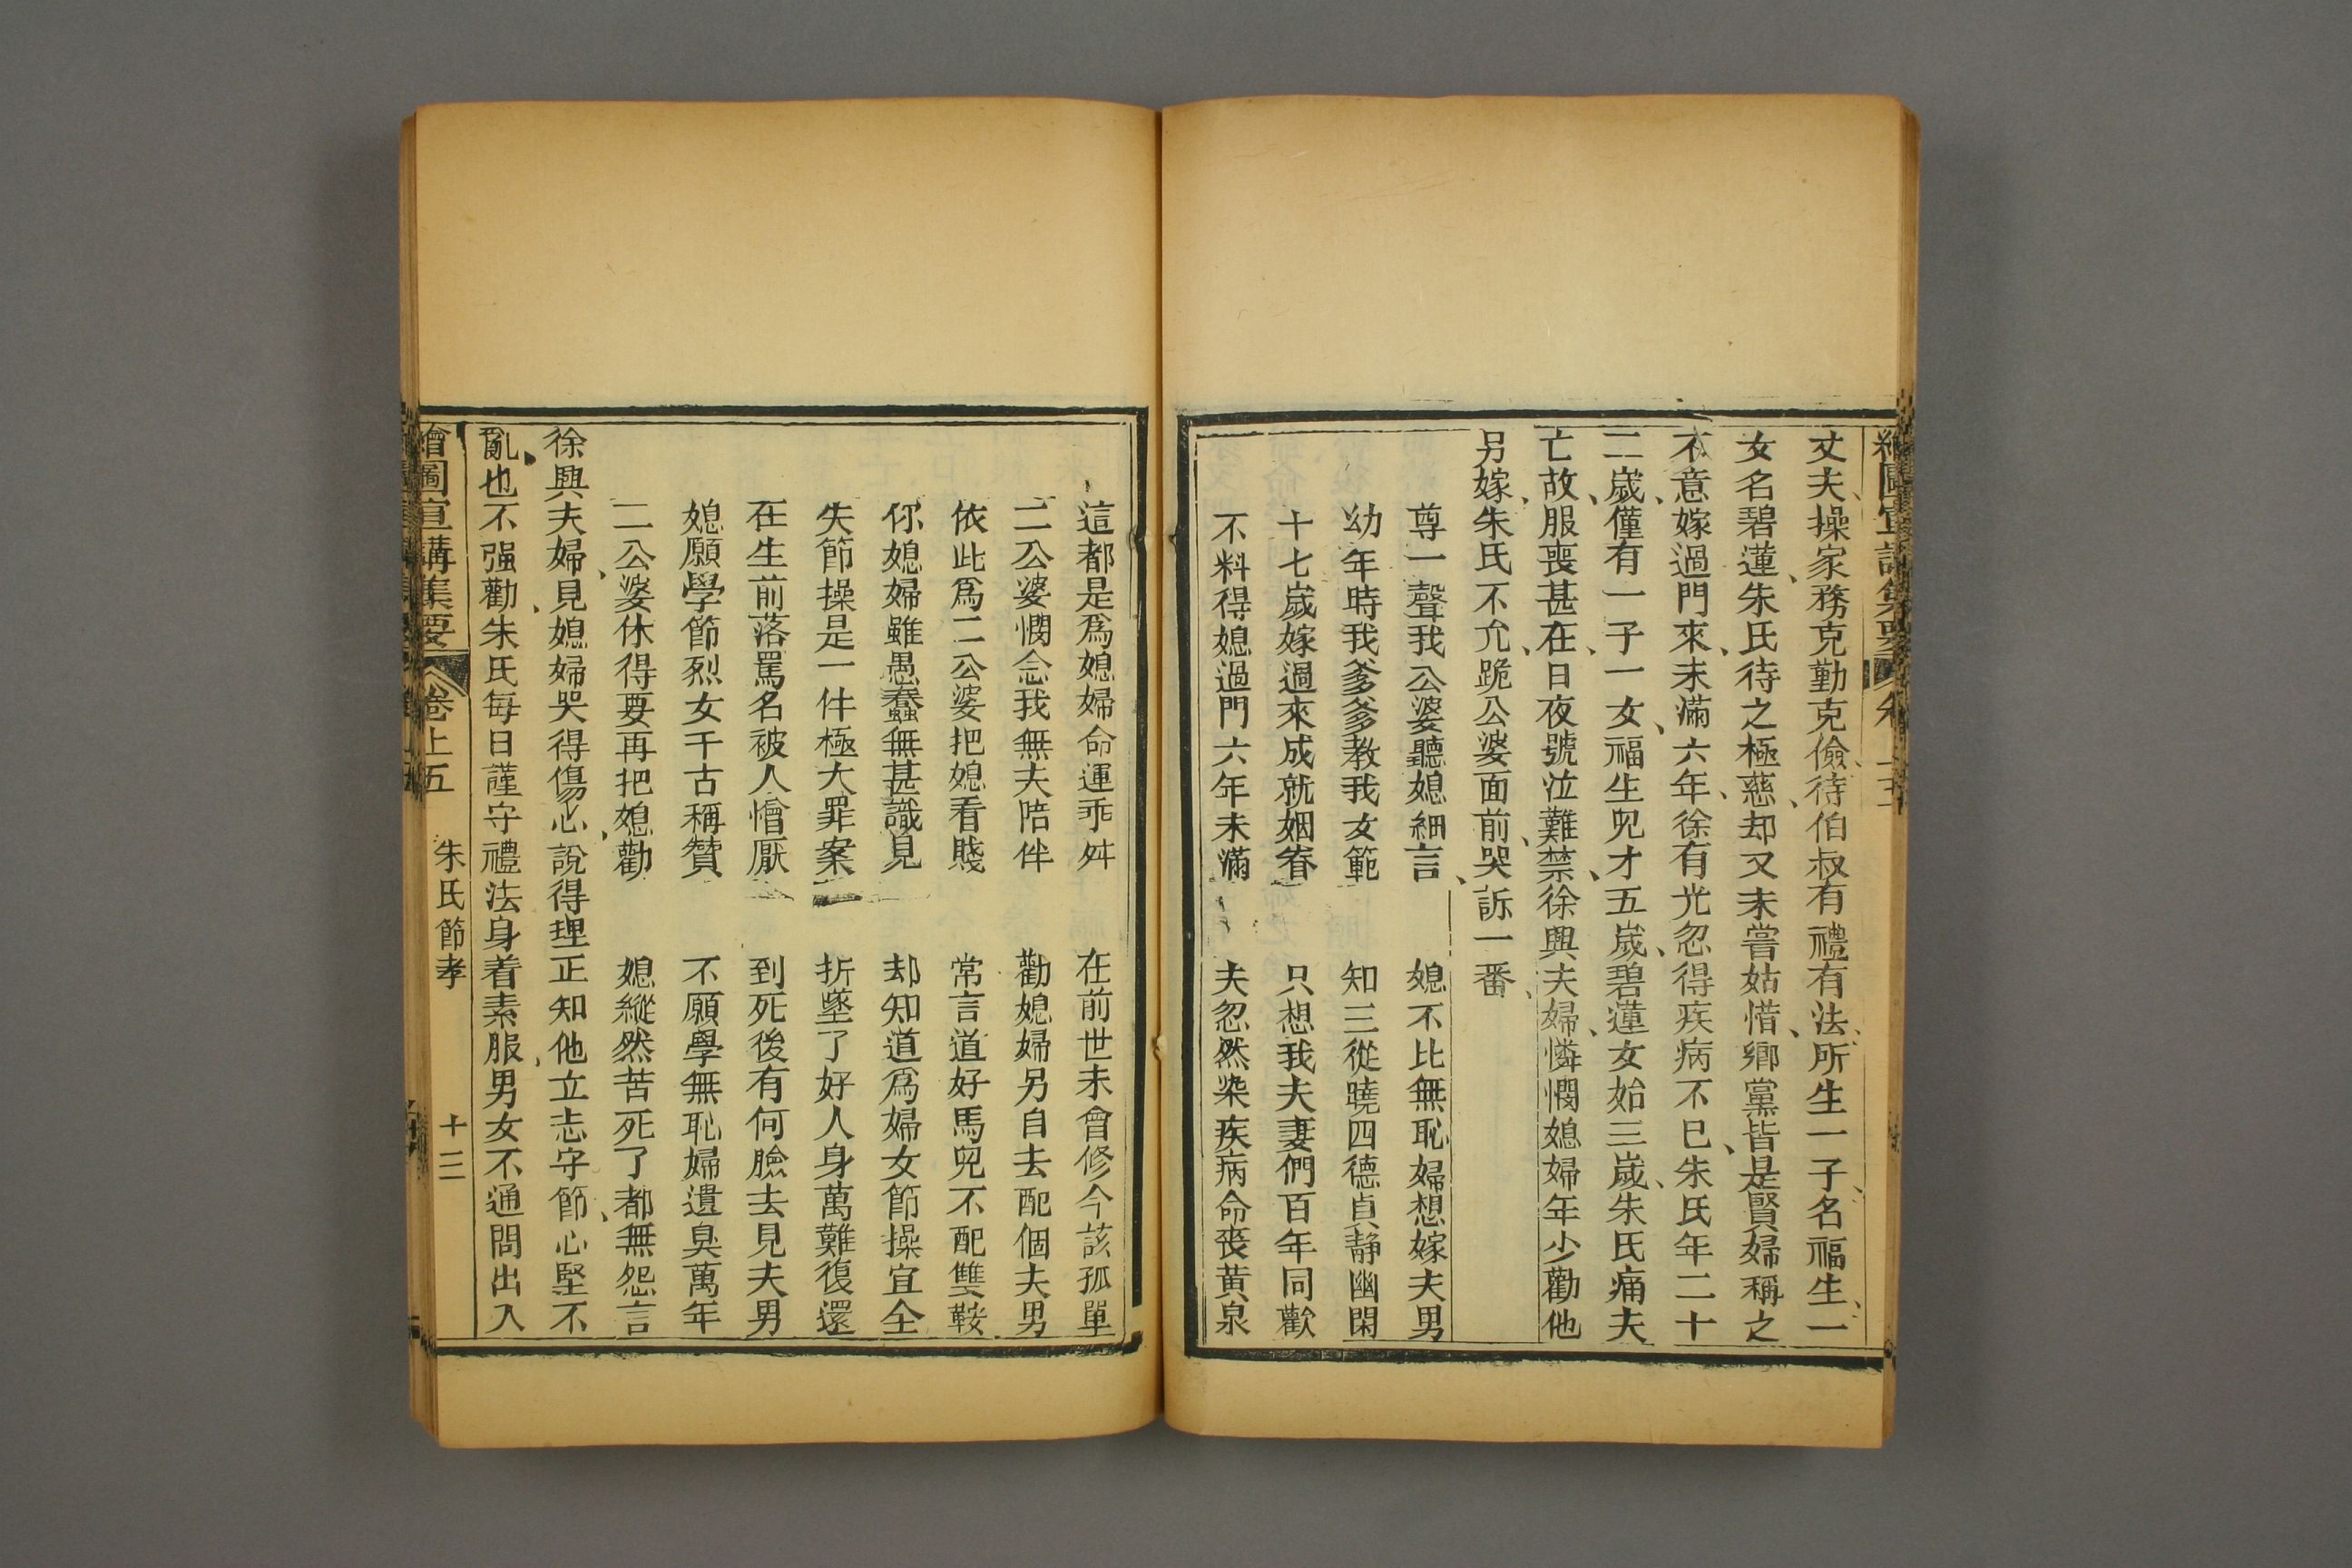 丈夫操家務克勤克儉待伯叔有禮有法所生一子名福生一
女名碧蓮朱氏待之極慈却又未嘗姑惜鄉黨皆是賢婦稱之
不意嫁過門來未滿六年徐有光忽得疾病不已朱氏年二十
二歲僅有一子一女福生兒才五歲碧蓮女始三歲朱氏痛夫
亡故服喪甚在日夜號泣難禁徐興夫婦憐憫媳婦年少勸他
另嫁朱氏不允跪公婆面前哭訴一番
尊一聲我公婆聽媳細言 媳不比無恥婦想嫁夫男
幼年時我爹爹教我女範 知三從曉四德貞靜幽閑
十七歲嫁過來成就姻眷 只想我夫妻們百年同歡
不料得媳過門六年未滿 夫忽然染疾病命丧黃泉
這都是爲媳婦命運乖舛 在前世未曾修今該孤單
二公婆憫念我無夫陪伴 勸媳婦另自去配個夫男
依此爲二公婆把媳看賤 常言道好馬兒不配雙鞍
你媳婦雖愚蠢無甚識見 却知道爲婦女節操宜全
失節操是一件極大罪案 折墜了好人身萬難復還
在生前落罵名被人憎厭 到死後有何臉去見夫男
媳願學節烈女千古稱贊 不願學無恥婦遺臭萬年
二公婆休得要再把媳勸 媳縱然苦死了都無怨言
徐興夫婦見媳婦哭得傷心說得理正知他立志守節心堅不
亂也不强勸朱氏每日謹守禮法身着素服男女不通問出入
繪圖宣講集要 卷上五 朱氏節孝 十三